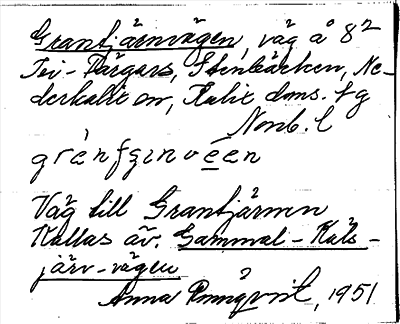 Grantjärnvägen, väg å 82
Tei-Färgars, Stenbäcken, Ne-
derkalix sn, Kalix doms. tg
Norrb. l
grǻnfʒɪnvɛ́en
Väg till Grantjärnen
Kallas äv. Gammal-Kals-
järv-vägen
Anna Rönnqvist, 1951